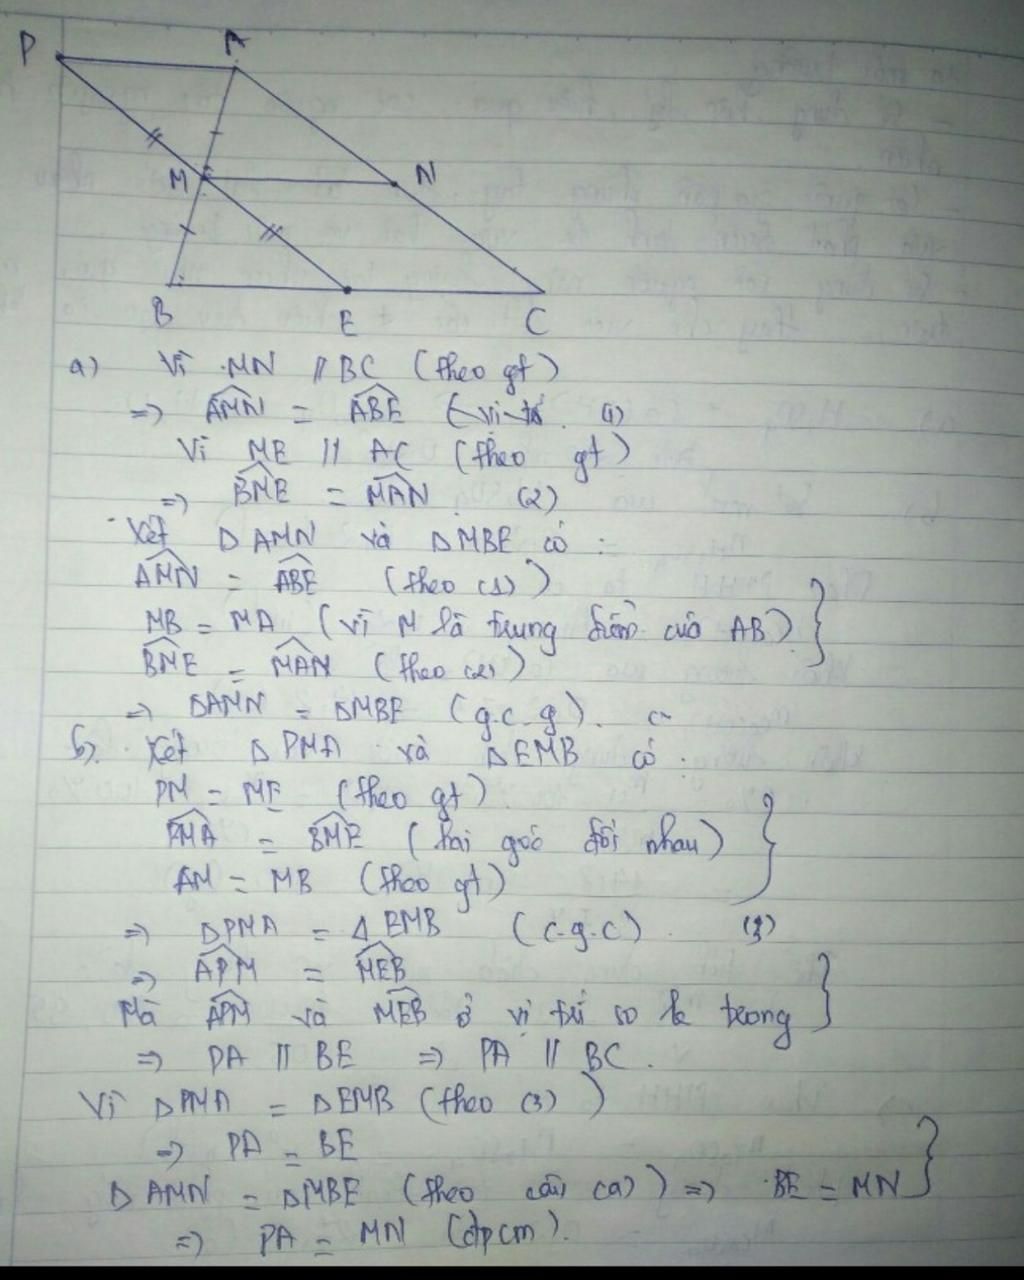 P A
M N
B E C
a) Vì MN // BC (theo gt)
=> AMN = ABE (1)
Vì ME // AC (theo gt)
=> BME = MAN (2)
Xét ΔAMN và ΔMBE có :
AMN = ABE (theo (1))
MB = MA (vì M là trung điểm của AB)
BME = MAN (theo (2))
=> ΔAMN = ΔMBE (g.c.g).
b). Xét ΔPMA và ΔEMB có :
PM = ME (theo gt)
PMA = BME (hai góc đối nhau)
AM = MB (theo gt)
=> ΔPMA = ΔEMB (c.g.c) (3)
=> APM = MEB
Mà APM và MEB ở vị trí so le trong
=> PA // BE => PA // BC.
Vì ΔPMA = ΔEMB (theo (3))
=> PA = BE
ΔAMN = ΔMBE (theo câu (a)) => BE = MN
=> PA = MN (đpcm).